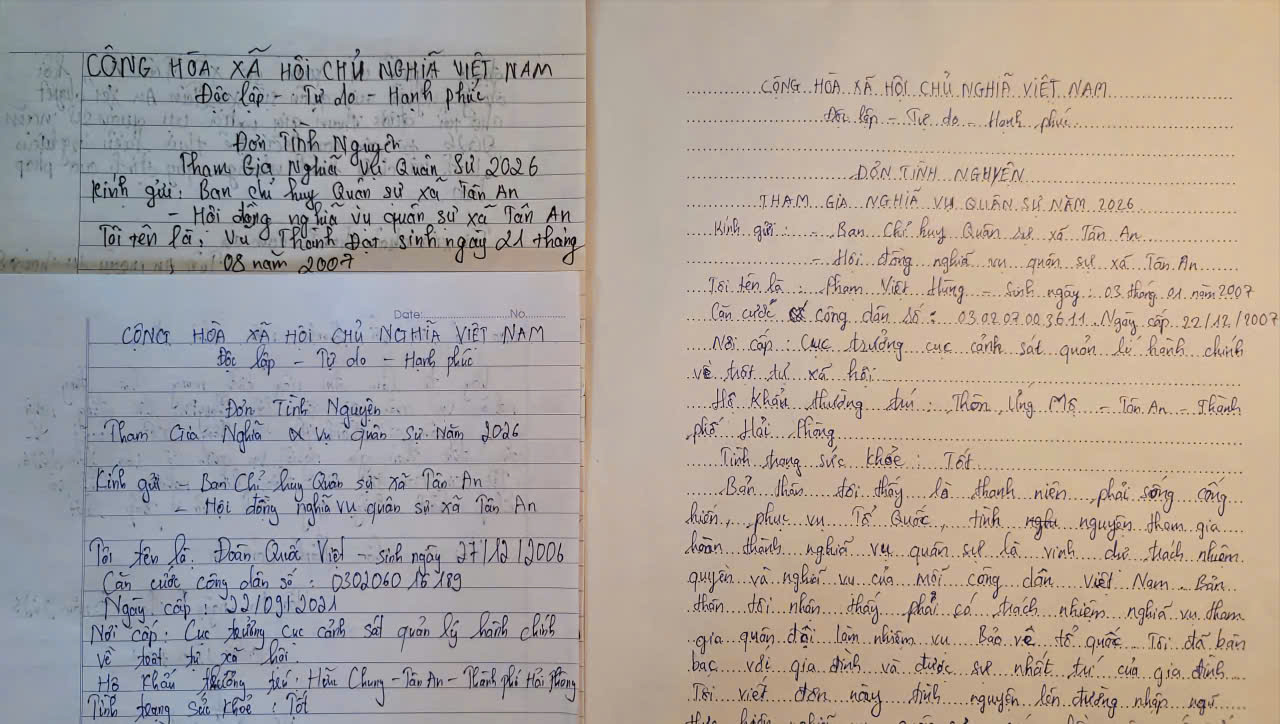 CỘNG HÒA XÃ HỘI CHỦ NGHĨA VIỆT NAM
Độc lập - Tự do - Hạnh phúc
Đơn Tình Nguyện
Tham Gia Nghĩa Vụ Quân Sự 2026
Kính gửi: Ban chỉ huy Quân sự xã Tân An
- Hội đồng nghĩa vụ quân sự xã Tân An
Tôi tên là: Vũ Thành Đạt sinh ngày 21 tháng
08 năm 2007
Date: No.
CỘNG HÒA XÃ HỘI CHỦ NGHĨA VIỆT NAM
Độc lập - Tự do - Hạnh phúc
Đơn Tình Nguyện
Tham Gia Nghĩa vụ quân sự Năm 2026
Kính gửi - Ban Chỉ huy Quân sự xã Tân An
- Hội đồng nghĩa vụ quân sự xã Tân An
Tôi tên là: Đoàn Quốc Việt - sinh ngày 27/12/2006
Căn cước công dân số: 030206016189
Ngày cấp: 22/09/2021
Nơi cấp: Cục trưởng cục cảnh sát quản lý hành chính
về trật tự xã hội.
Hộ khẩu thường trú: Hữu Chung - Tân An - Thành phố Hải Phòng
Tình trạng sức khỏe: Tốt
CỘNG HÒA XÃ HỘI CHỦ NGHĨA VIỆT NAM
Độc lập - Tự do - Hạnh phúc
ĐƠN TÌNH NGUYỆN
THAM GIA NGHĨA VỤ QUÂN SỰ NĂM 2026
Kính gửi: - Ban Chỉ huy Quân sự xã Tân An
- Hội đồng nghĩa vụ quân sự xã Tân An
Tôi tên là: Phạm Việt Hùng - Sinh ngày: 03 tháng 01 năm 2007
Căn cước công dân số: 030207003611 Ngày cấp 22/12/2007
Nơi cấp: Cục trưởng cục cảnh sát quản lí hành chính
về trật tự xã hội
Hộ khẩu thường trú: Thôn Úng Mộ - Tân An - Thành
phố Hải Phòng
Tình trạng sức khỏe: Tốt
Bản thân tôi thấy là thanh niên phải sống cống
hiến, phục vụ Tổ Quốc, tình nguyện tham gia
hoàn thành nghĩa vụ quân sự là vinh dự trách nhiệm
quyền và nghĩa vụ của mỗi công dân Việt Nam. Bản
thân tôi nhận thấy phải có trách nhiệm nghĩa vụ tham
gia quân đội làm nhiệm vụ Bảo vệ tổ quốc. Tôi đã bàn
bạc với gia đình và được sự nhất trí của gia đình.
Tôi viết đơn này tình nguyện lên đường nhập ngũ